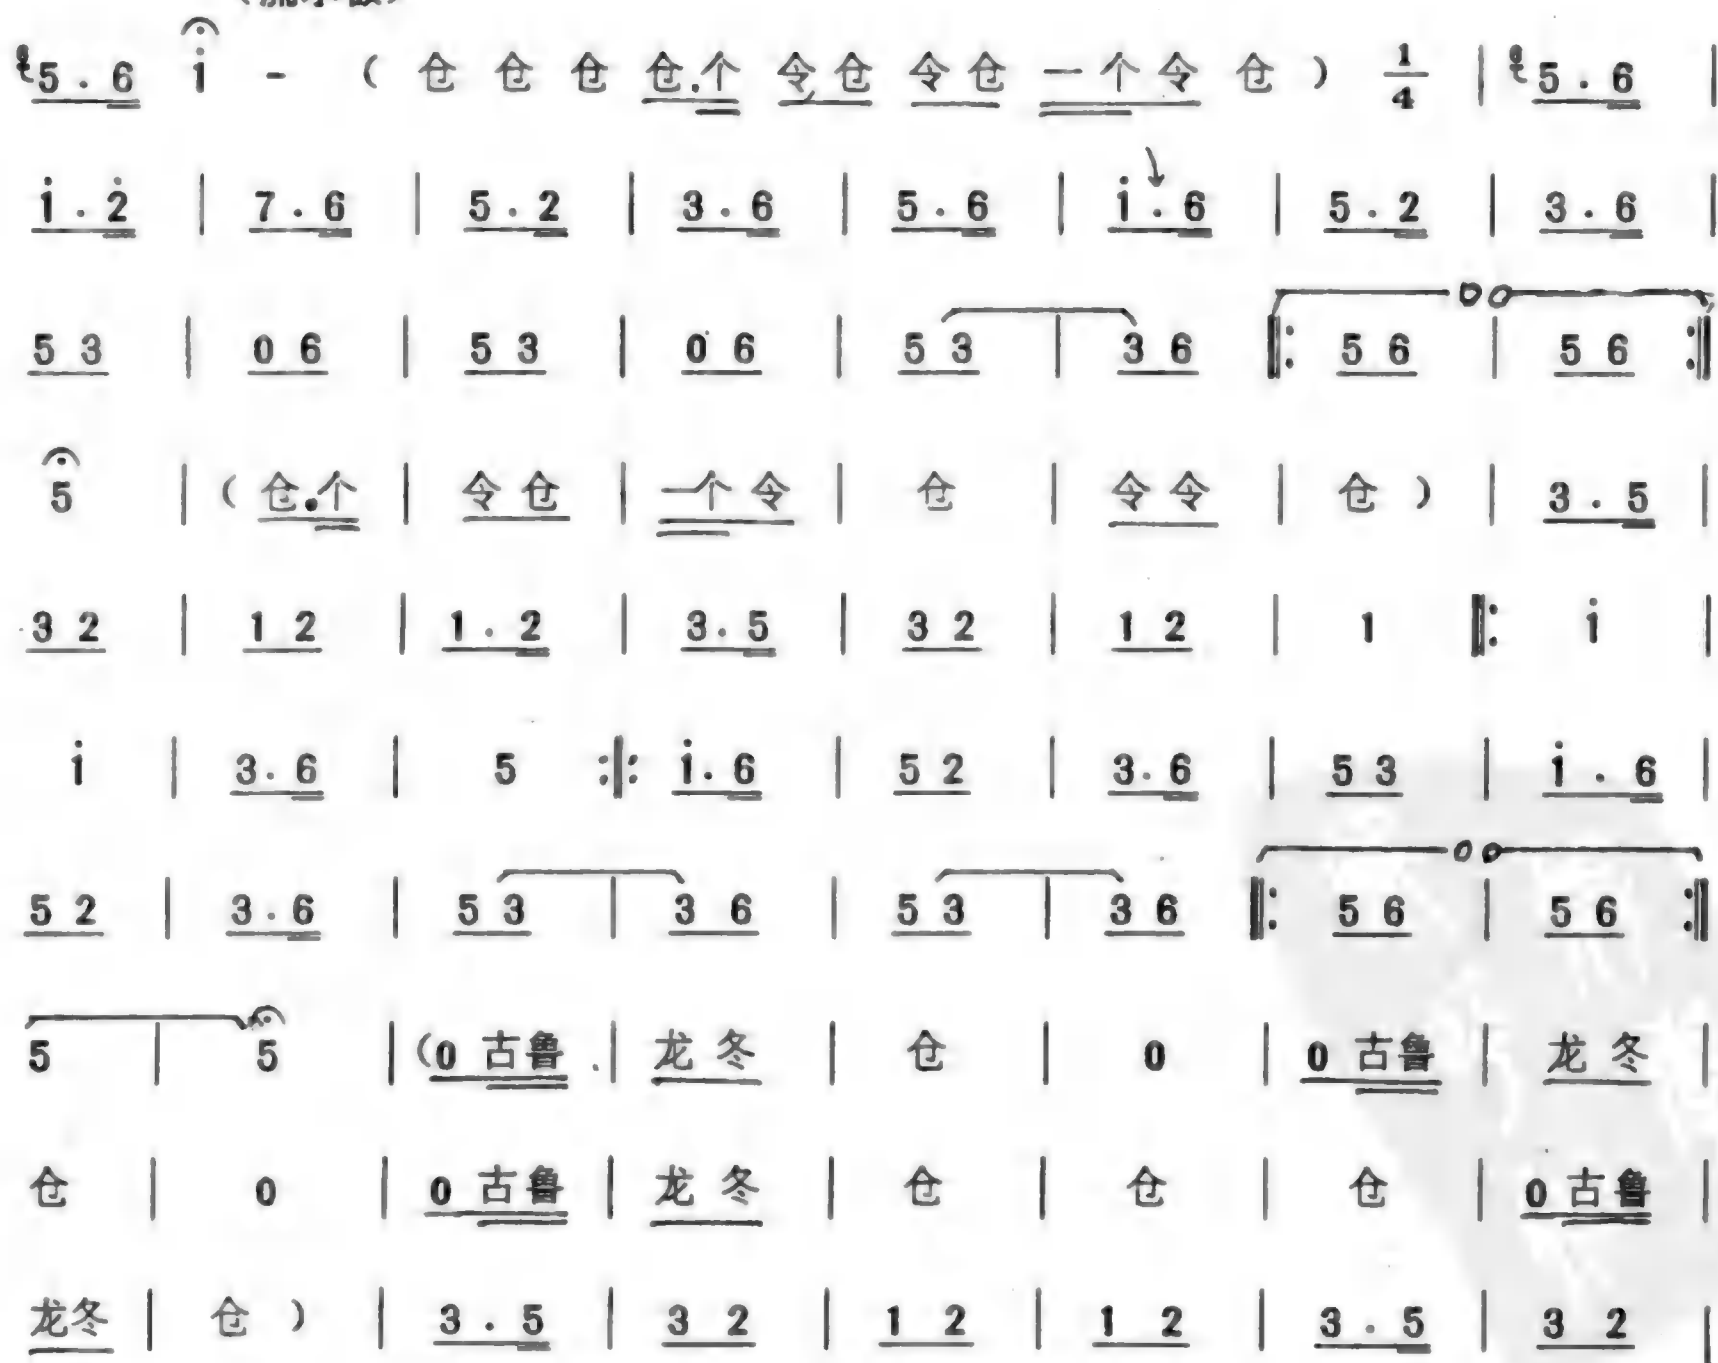 5.6 i - ( 仓 仓 仓 仓.个 令仓 令仓 一个令 仓 ) 1/4 | 5.6 |
i.2̇ | 7.6 | 5.2 | 3.6 | 5.6 | i.6 | 5.2 | 3.6 |
5 3 | 0 6 | 5 3 | 0 6 | 5 3 | 3 6 ‖: 5 6 | 5 6 :‖
5 | ( 仓.个 | 令仓 | 一个令 | 仓 | 令令 | 仓 ) | 3.5 |
3 2 | 1 2 | 1.2 | 3.5 | 3 2 | 1 2 | 1 ‖: i |
i | 3.6 | 5 :‖: i.6 | 5 2 | 3.6 | 5 3 | i.6 |
5 2 | 3.6 | 5 3 | 3 6 | 5 3 | 3 6 ‖: 5 6 | 5 6 :‖
5 | 5 | (0 古鲁 | 龙冬 | 仓 | 0 | 0 古鲁 | 龙冬 |
仓 | 0 | 0 古鲁 | 龙冬 | 仓 | 仓 | 仓 | 0 古鲁 |
龙冬 | 仓 ) | 3.5 | 3 2 | 1 2 | 1 2 | 3.5 | 3 2 |